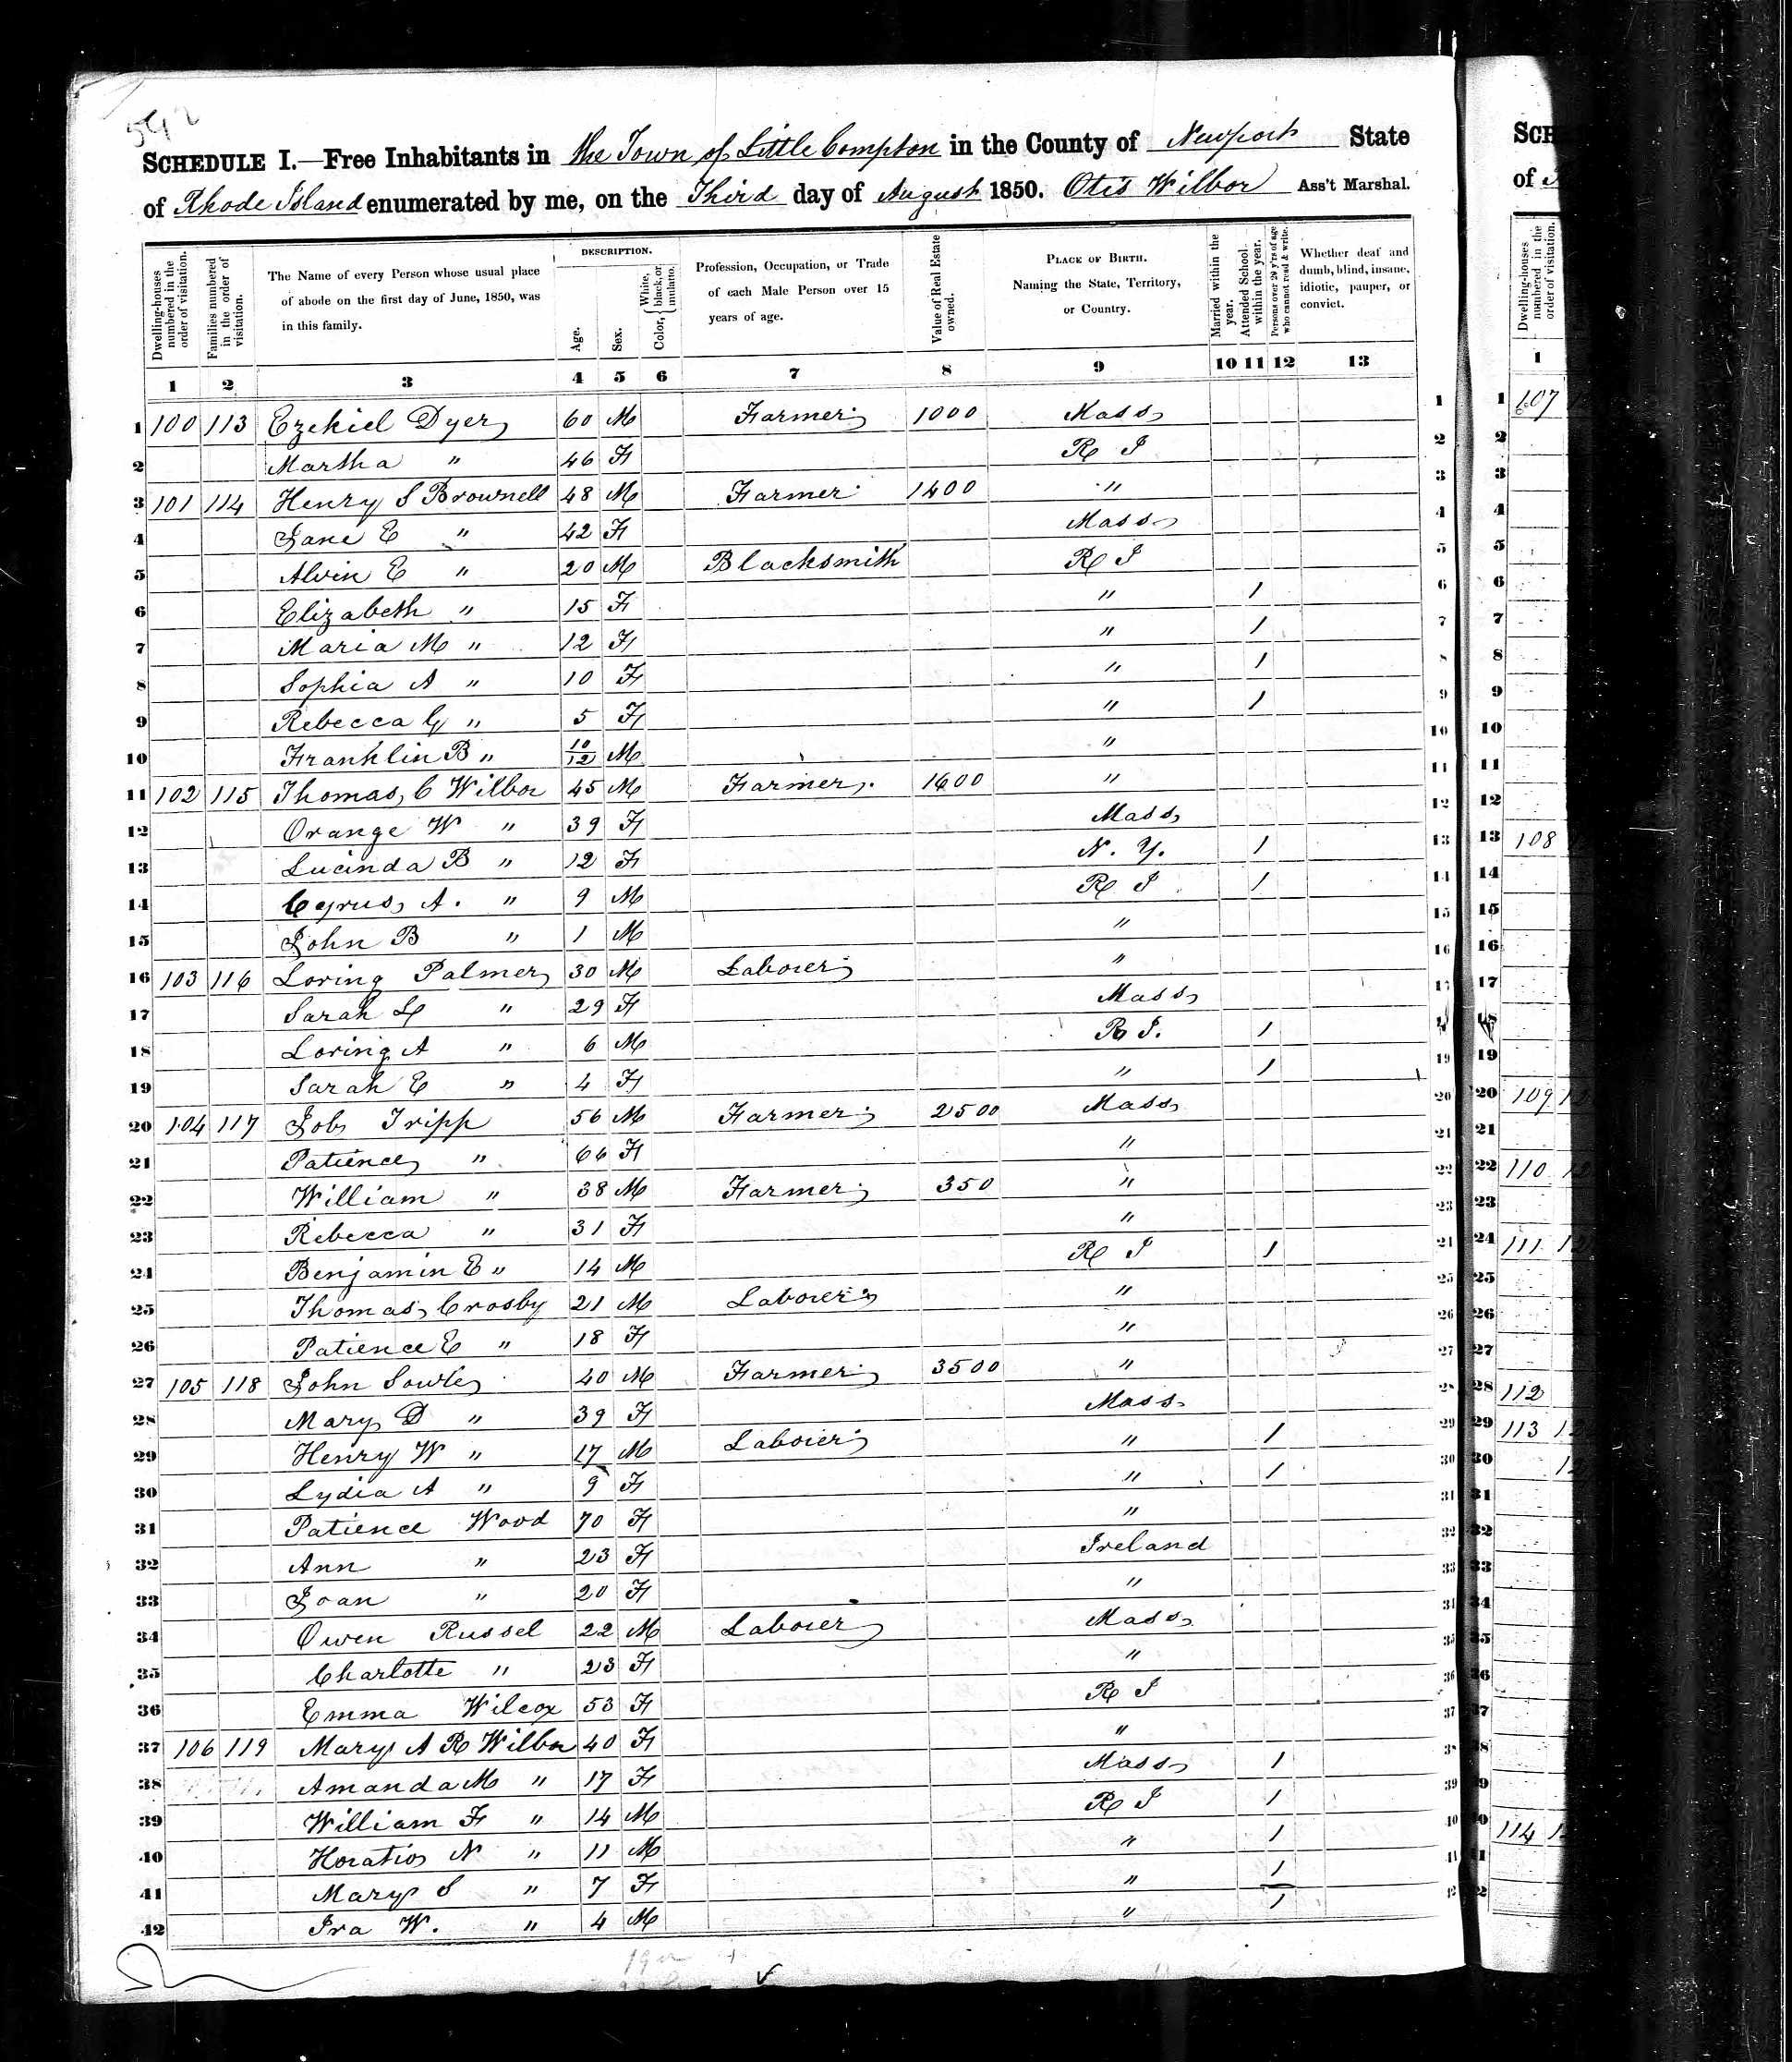 592
SCHEDULE I.—Free Inhabitants in the Town of Little Compton in the County of Newport State
of Rhode Island enumerated by me, on the Third day of August 1850. Otis Wilbor Ass't Marshal.
Dwelling-houses numbered in the order of visitation.
Families numbered in the order of visitation.
The Name of every Person whose usual place of abode on the first day of June, 1850, was in this family.
DESCRIPTION.
Age.
Sex.
Color, White, black, or mulatto.
Profession, Occupation, or Trade of each Male Person over 15 years of age.
Value of Real Estate owned.
PLACE OF BIRTH. Naming the State, Territory, or Country.
Married within the year.
Attended School within the year.
Persons over 20 y'rs of age who cannot read & write.
Whether deaf and dumb, blind, insane, idiotic, pauper, or convict.
1 2 3 4 5 6 7 8 9 10 11 12 13
1 100 113 Ezekiel Dyer 60 M Farmer 1000 Mass 1
2 Martha " 46 F R I 2
3 101 114 Henry S Brownell 48 M Farmer 1400 " 3
4 Jane E " 42 F Mass 4
5 Alvin E " 20 M Blacksmith R I 5
6 Elizabeth " 15 F " 1 6
7 Maria M " 12 F " 1 7
8 Sophia A " 10 F " 1 8
9 Rebecca G " 5 F " 1 9
10 Franklin B " 10/12 M " 10
11 102 115 Thomas C Wilbor 45 M Farmer. 1600 " 11
12 Orange W " 39 F Mass 12
13 Lucinda B " 12 F N. Y. 1 13
14 Cyrus A. " 9 M R I 1 14
15 John B " 1 M " 15
16 103 116 Loring Palmer 30 M Laborer " 16
17 Sarah L " 29 F Mass 17
18 Loring A " 6 M R I. 1
19 Sarah E " 4 F " 1 19
20 104 117 Job Tripp 56 M Farmer 2500 Mass 20
21 Patience " 66 F " 21
22 William " 38 M Farmer 350 " 22
23 Rebecca " 31 F " 23
24 Benjamin E " 14 M R I 1 24
25 Thomas Crosby 21 M Laborer " 25
26 Patience E " 18 F " 26
27 105 118 John Sowle 40 M Farmer 3500 " 27
28 Mary D " 39 F Mass 28
29 Henry W " 17 M Laborer " 1 29
30 Lydia A " 9 F " 1 30
31 Patience Wood 70 F " 31
32 Ann " 23 F Ireland 32
33 Joan " 20 F " 33
34 Owen Russel 22 M Laborer Mass 34
35 Charlotte " 23 F " 35
36 Emma Wilcox 53 F R I 36
37 106 119 Mary A R Wilbor 40 F " 37
38 Amanda M " 17 F Mass 1 38
39 William F " 14 M R I 1 39
40 Horatio N " 11 M " 1 40
41 Mary S " 7 F " 1 41
42 Ira W. " 4 M " 1 42
SCH
of
Dwelling-houses numbered in the order of visitation.
1
1 107
2
3
4
5
6
7
8
9
10
11
12
13 108
14
15
16
17
18
19
20 109
21
22 110
23
24 111
25
26
27
28 112
29 113
30
31
32
33
34
35
36
37
38
39
40 114
41
42